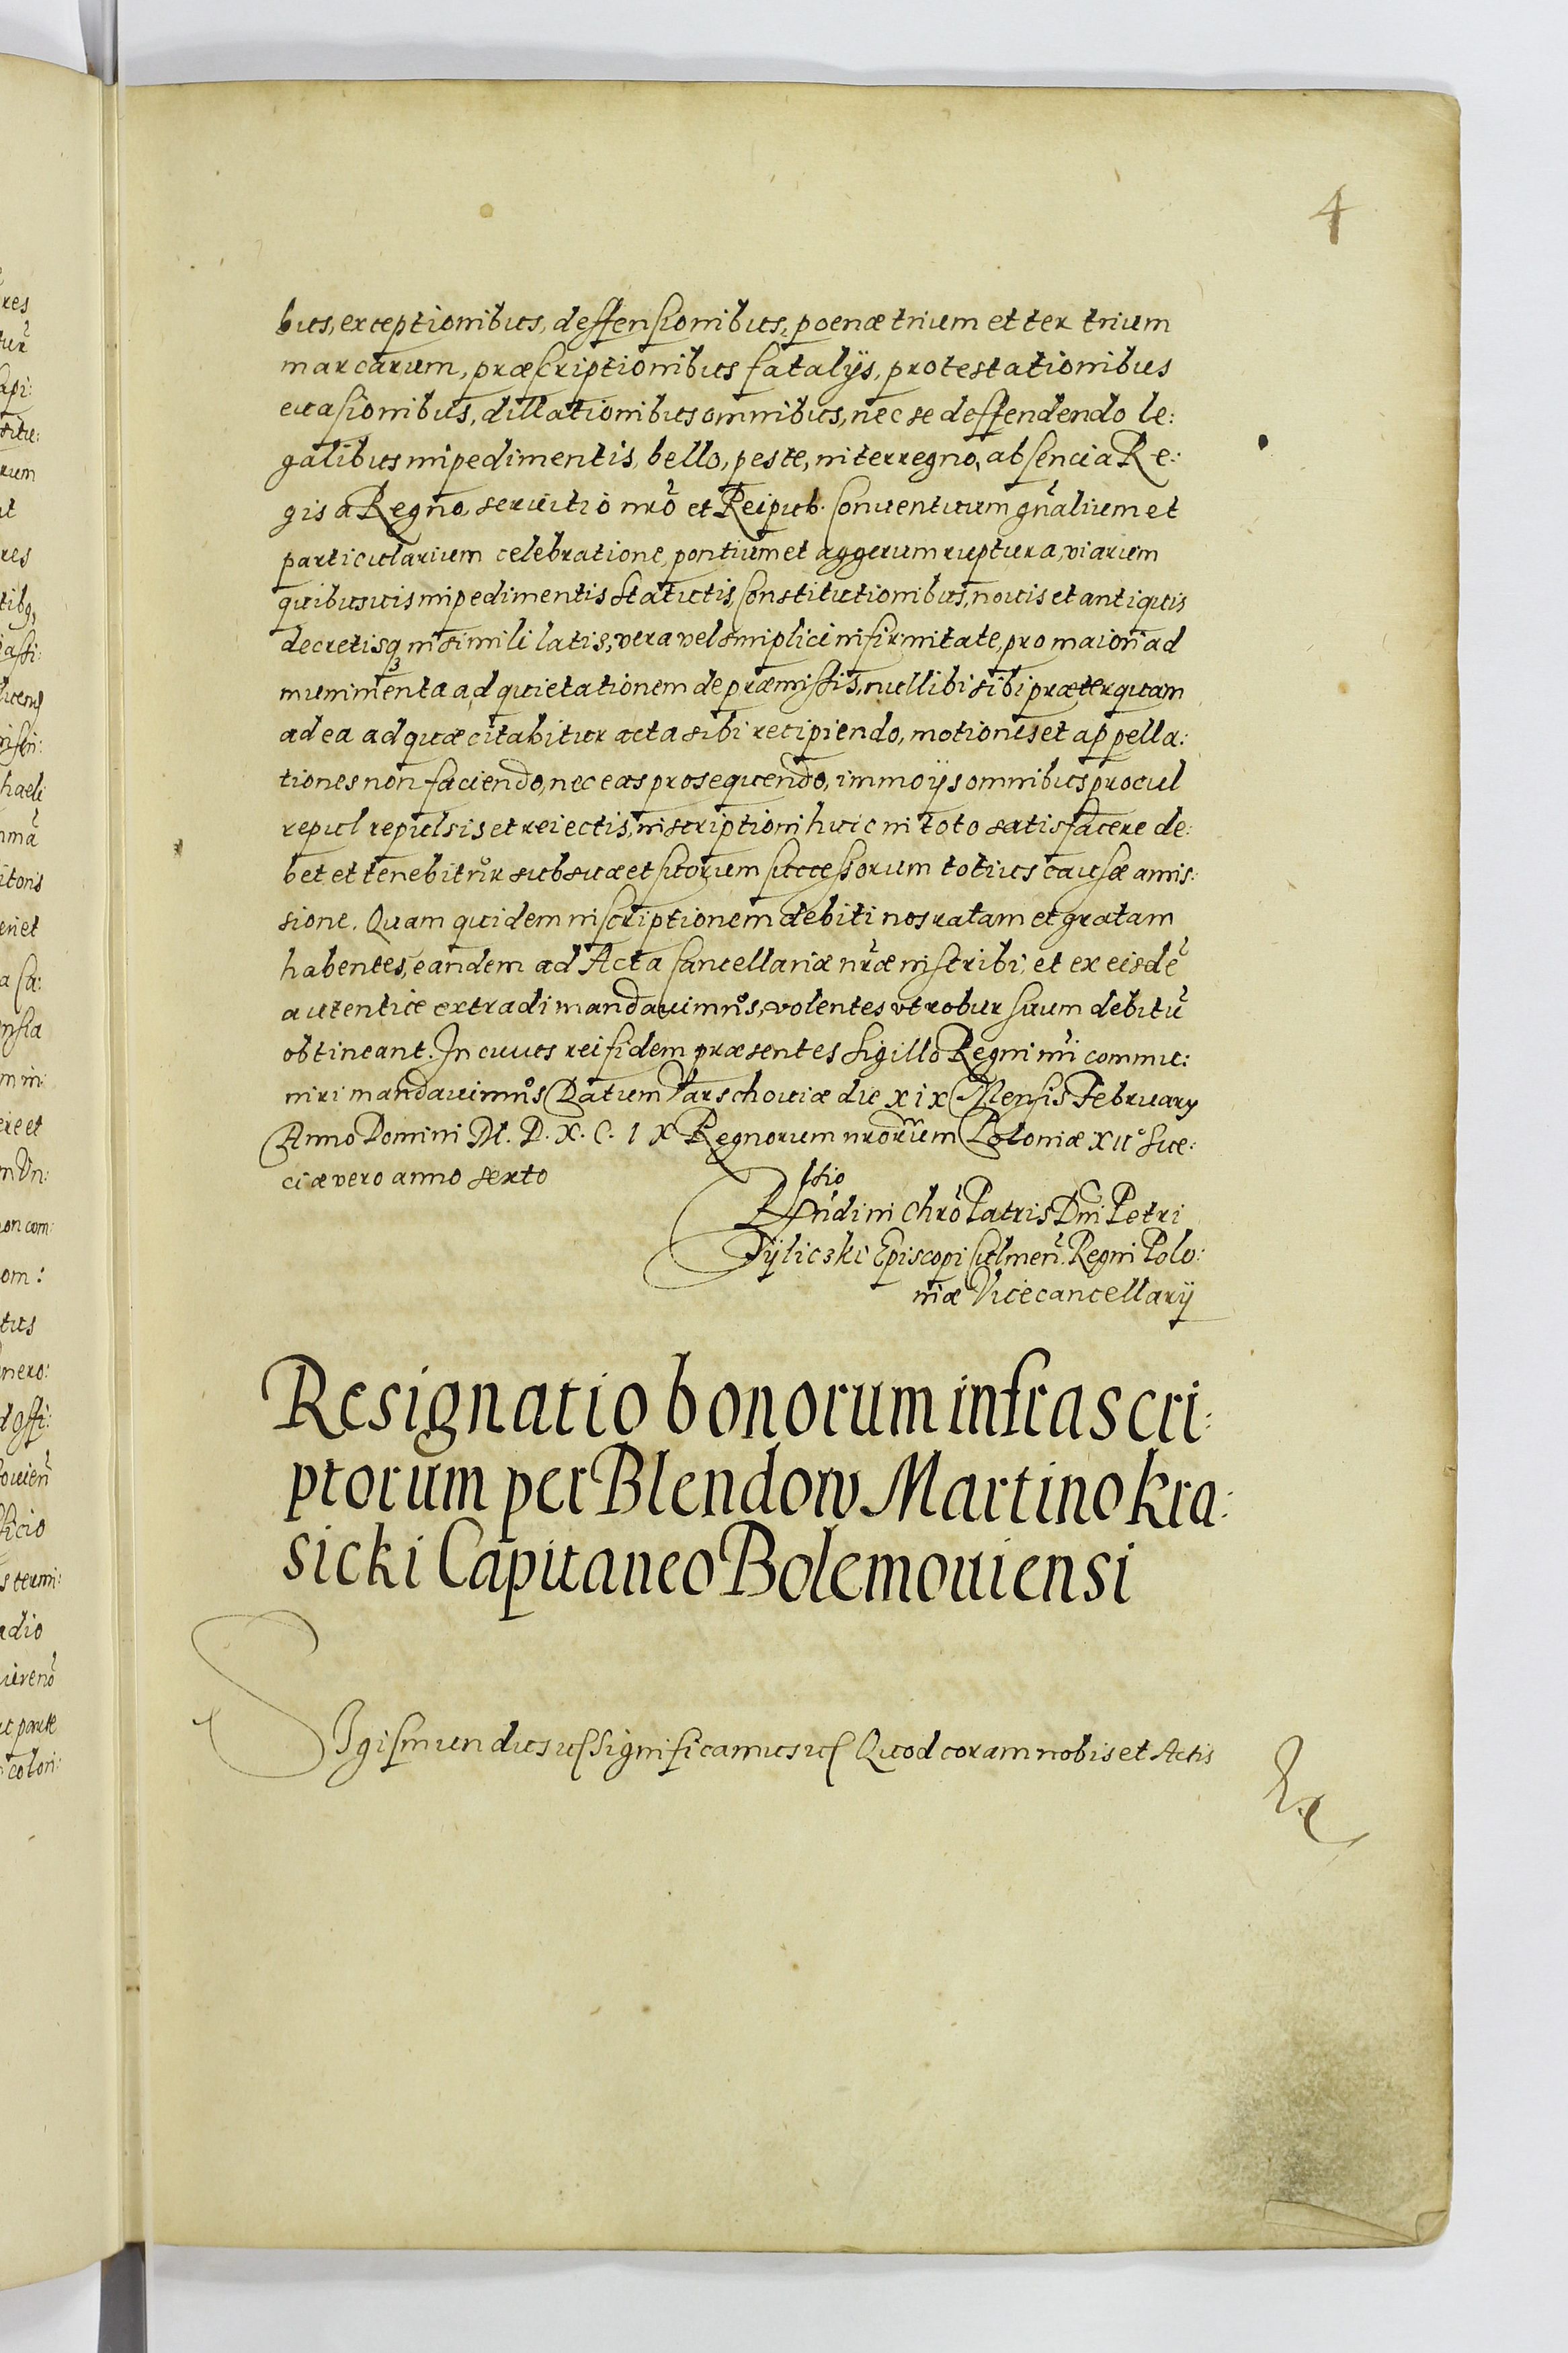 4
bus, exceptionibus, deffensionibus, poenæ trium et ter trium
marcarum, præscriptionibus fatalijs, protestationibus
euasionibus, dillationibus omnibus, nec se deffendendo le:
galibus impedimentis, bello, peste, interregno, absencia Re:
gis a Regno, seruitio nro et Reipub. Conuentuum gnalium et
particularium celebratione, pontium et aggerum ruptura, viarum
quibusuis impedimentis Statutis, Constitutionibus, nouis et antiquis
decretisq in simili latis, vera vel simplici infirmitate, pro maiori ad
munimenta ad quietationem de præmissis, nullibi sibi præterquam
ad ea ad quæ citabitur acta sibi recipiendo, motiones et appella:
tiones non faciendo, nec eas prosequendo, immo ijs omnibus procul
repul repulsis et reiectis, inscriptioni huic in toto satisfacere de:
bet et tenebitur sub sua et suorum successorum totius causæ amis:
sione. Quam quidem inscriptionem debiti nos ratam et gratam
habentes, eandem ad Acta Cancellariæ nræ inscribi, et ex eisdē
autentice extradi mandauimus, volentes vt robur suum debitū
obtineant. In cuius rei fidem præsentes Sigillo Regni nri commu:
niri mandauimus Datum Varschouiæ die xix Mensis February
Anno Domini M. D. X. C. IX Regnorum nrorum Poloniæ XIIº Sue:
ciæ vero anno sexto
Rndi in Chro Patris Dni Petri
Tijliczki Episcopi Culmeñ. Regni Polo:
niæ Vicecancellarij
Resignatio bonorum infrascri:
ptorum per Blendow Martino Kra:
sicki Capitaneo Bolemouiensi
Sigismundus us Significamus us Quod coram nobis et Actis